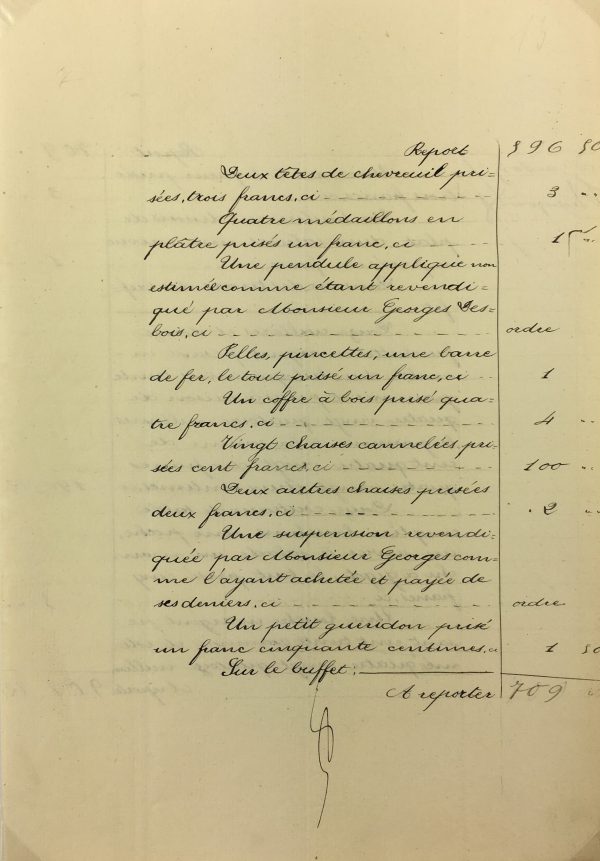 13
Report 596 50
Deux têtes de chevreuil pri=
sées, trois francs, ci 3 "
Quatre médaillons en
plâtre prisés un franc, ci 1 "
Une pendule applique non
estimée comme étant revendi-
qué par Monsieur Georges Des=
bois, ci ordre
Pelles, pincettes, une barre
de fer, le tout prisé un franc, ci 1
Un coffre à bois prisé qua-
tre francs, ci 4 "
Vingt chaises cannelées pri=
sées cent francs, ci 100 "
Deux autres chaises prisées
deux francs, ci 2 "
Une suspension revendi-
quée par Monsieur Georges com-
me l'ayant achetée et payée de
ses deniers, ci ordre
Un petit gueridon prisé
un franc cinquante centimes, ci 1 50
Sur le buffet:
A reporter 709 "